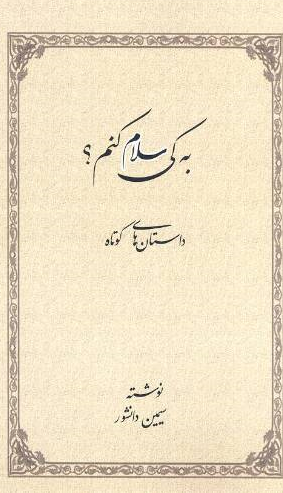 به کی سلام کنم؟
داستان‌های کوتاه
نوشته
سیمین دانشور